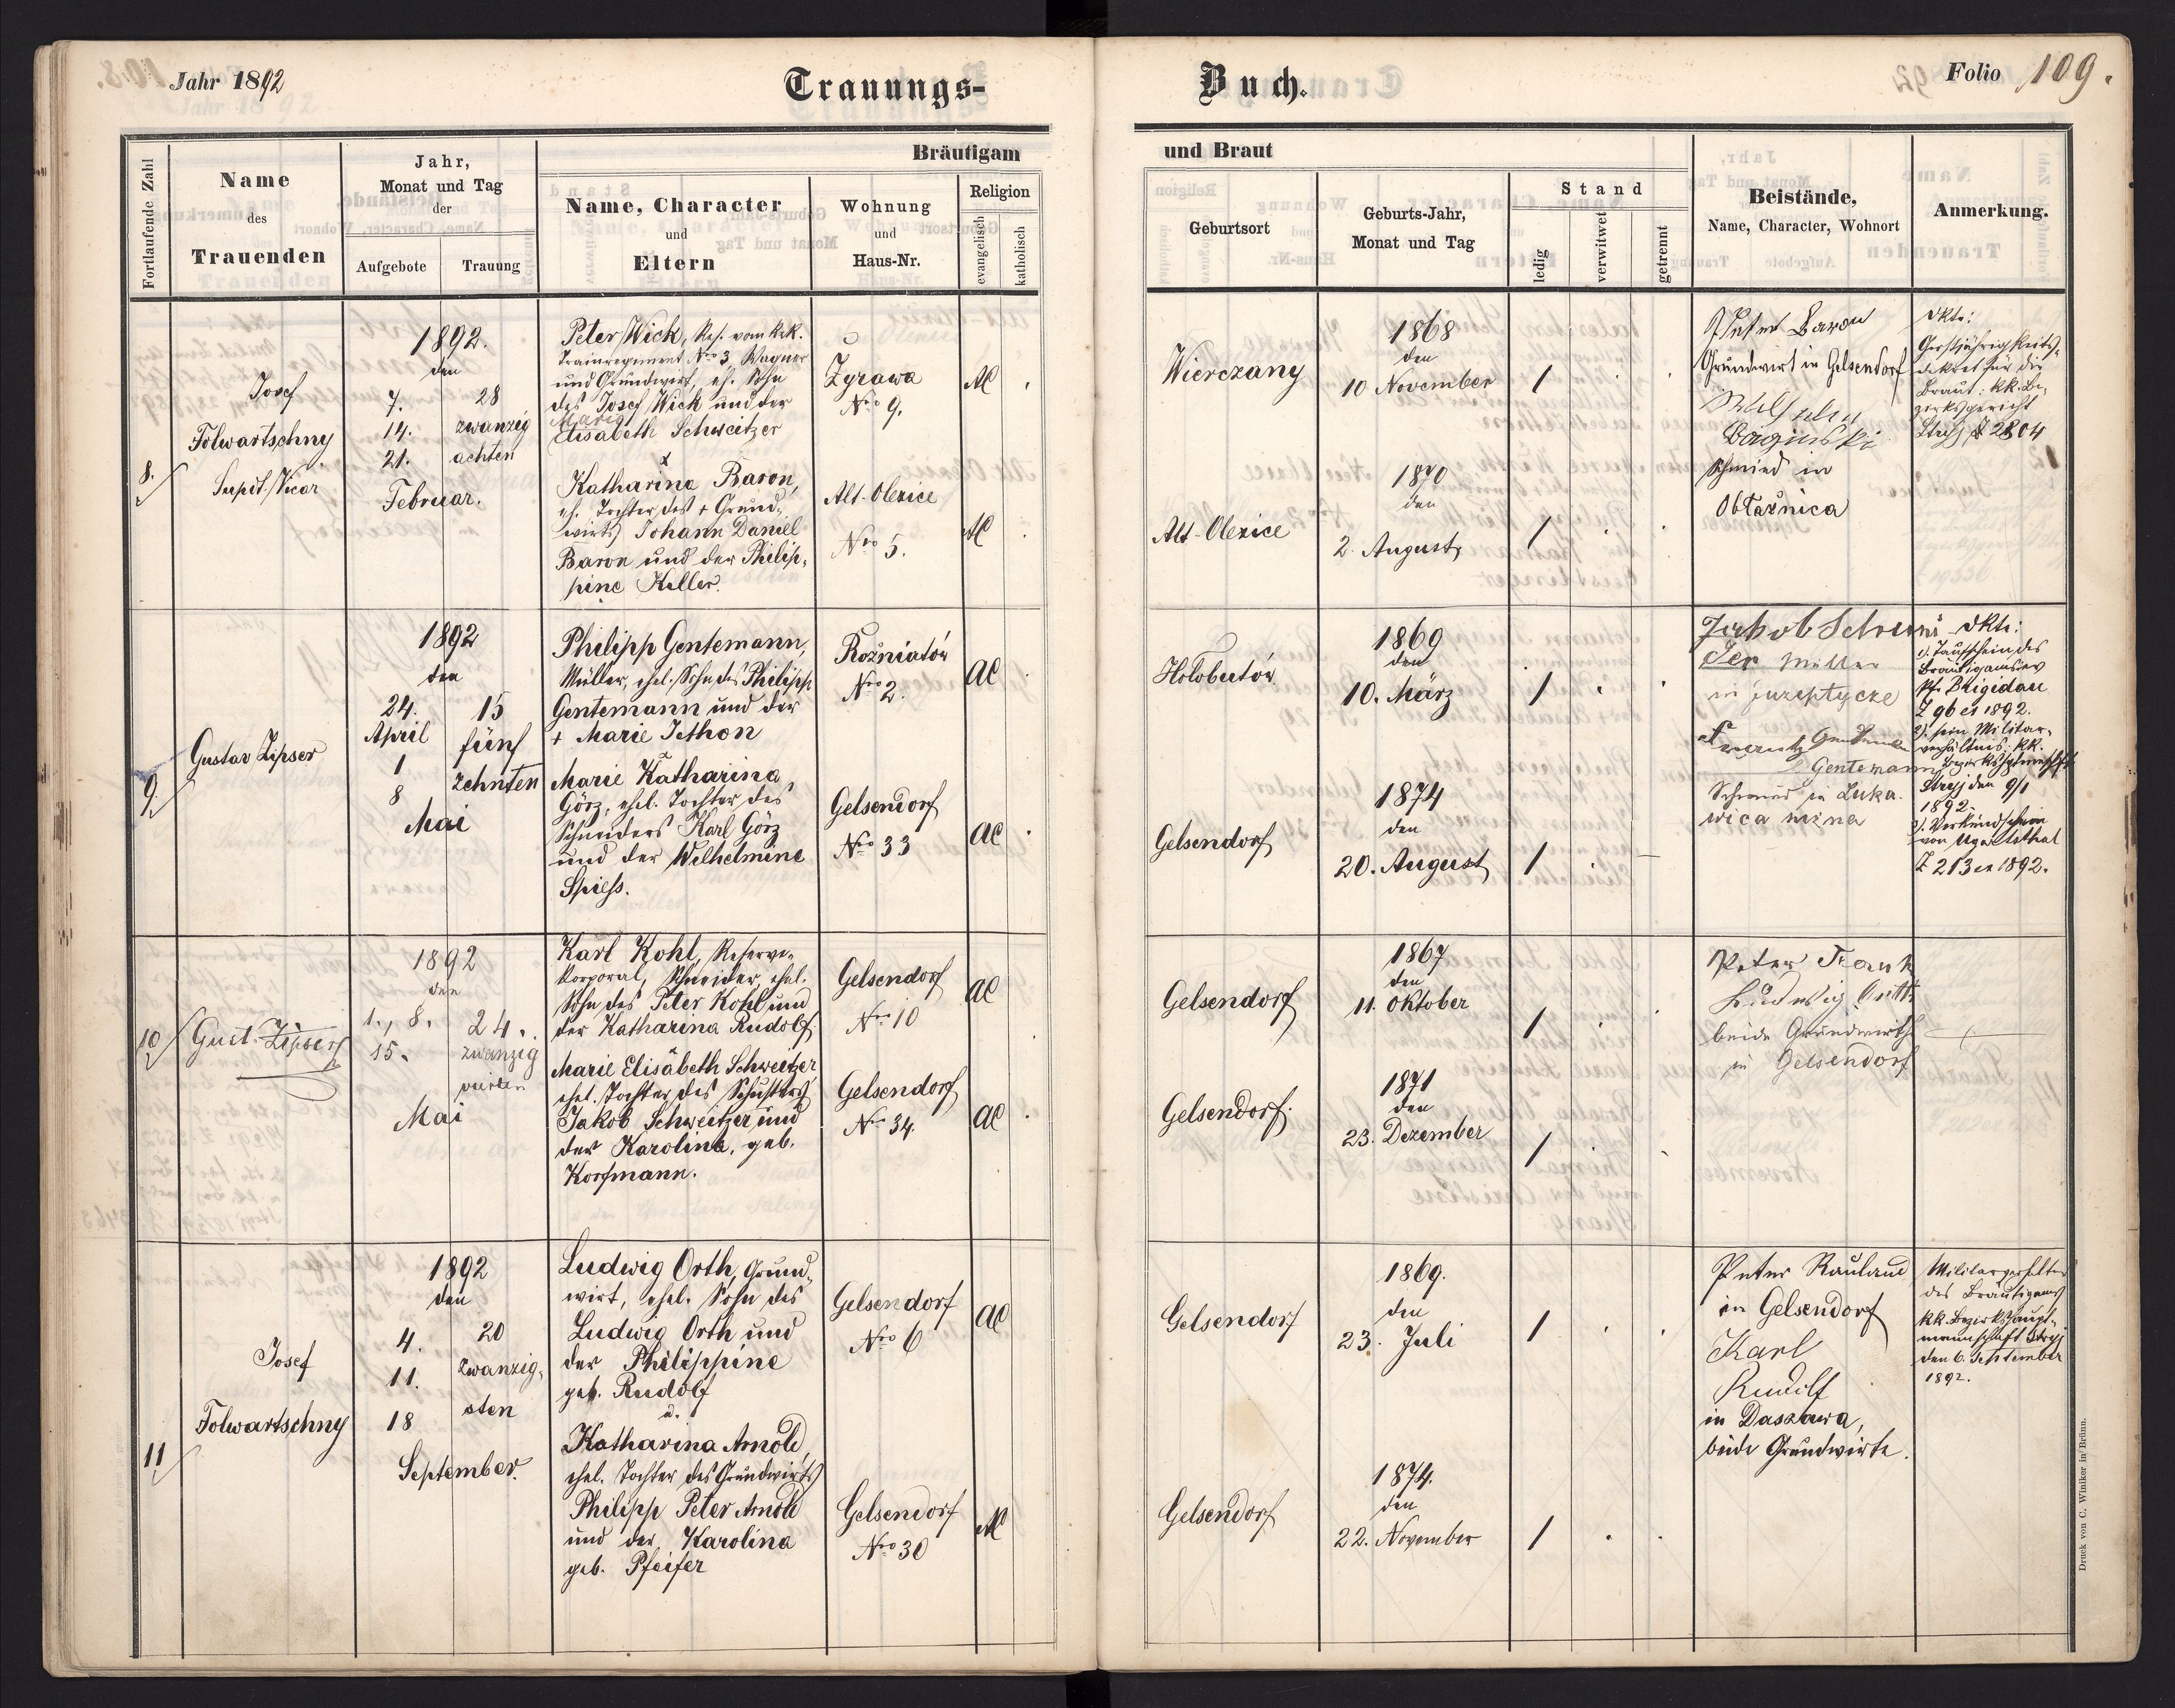 Jahr 1892
Trauungs-
Buch.
Folio 109.
Fortlaufende Zahl
Name
des
Trauenden
Jahr,
Monat und Tag
der
Aufgebote
Trauung
Bräutigam
und Braut
Name, Character
und
Eltern
Wohnung
und
Haus-Nr.
Religion
evangelisch
katholisch
Geburtsort
Geburts-Jahr,
Monat und Tag
Stand
ledig
verwitwet
getrennt
Beistände,
Name, Character, Wohnort
Anmerkung.
8.
Josef
Folwartschny
Vicar
1892.
den
7.
14.
21.
Februar.
28
zwanzig
achten
Peter Wick, Res. vom k.k.
Trainregiment Nro 3, Wagner
und Grundwirt, eh. Sohn
des Josef Wick und der
Marie
Elisabeth Schweitzer
Zyrawa
Nro 9.
AC
Wierczany
1868
den
10 November
1
Katharina Baron,
eh. Tochter des + Grund-
wirts Johann Daniel
Baron und der Philip-
pine Keller.
Alt-Olexice
Nro 5.
AC
Alt-Olexice
1870
den
2. August
1
Peter Baron
Grundwirt in Gelsendorf
Baginski
Schmied in
Obłaznica
Akte:
Großjährigkeits-
dekret für die
Braut: kk. Be-
zirksgericht
Stryj 2804
9.
Gustav Zipser
1892
den
24.
April
1
8
Mai
15
fünf
zehnten
Philipp Gentemann,
Müller, ehel. Sohn des Philipp
Gentemann und der
+ Marie Jethon
Rożniatów
Nro 2.
AC
Hołobutów
1869
den
10. März
1
Marie Katharina
Görz, ehel. Tochter des
Schneiders Karl Görz
und der Wilhelmine
Spiess.
Gelsendorf
Nro 33
AC
Gelsendorf
1874
den
20. August
1
Jakob Schrei
der Müller
in Juzeptycze
Gentemann
Schmied in Łuka-
wica nizna
Akte:
1). Taufschein des
Bräutigams ev
Pf. Brigidau
Z 96 ex 1892.
2). sein Militär-
verhältnis: kk.
Bezirkshptmschft
Stryj den 9/1
1892.
3). Verkündschein
von Ugartsthal
Z 213 ex 1892.
10
Gust. Zipser
1892
den
1., 8.
15.
Mai
24.
zwanzig
vierten
Karl Kohl, Reserve-
korporal, Schneider, ehel.
Sohn des Peter Kohl und
der Katharina Rudolf
Gelsendorf
Nro 10
AC
Gelsendorf
1867
den
11. Oktober
1
Marie Elisabeth Schweitzer
ehel. Tochter des Schusters
Jakob Schweitzer und
der Karolina, geb.
Korfmann.
Gelsendorf
Nro 34.
AC
Gelsendorf.
1871
den
23. Dezember
1
Peter Frank
Ludwig Orth
beide Grundwirthe
in Gelsendorf
11
Josef
Folwartschny
1892
den
4.
11.
18
September.
20
zwanzig-
sten
Ludwig Orth, Grund-
wirt, ehel. Sohn des
Ludwig Orth und
der Philippine
geb. Rudolf
u.
Gelsendorf
Nro 6
AC
Gelsendorf
1869.
den
23. Juli
1
Katharina Arnold,
ehel. Tochter des Grundwirts
Philipp Peter Arnold
und der Karolina
geb. Pfeifer
Gelsendorf
Nro 30
AC
Gelsendorf
1874.
den
22. November
1
Peter Rauland
in Gelsendorf
Karl
Rudolf
in Daszawa,
beide Grundwirte.
des Bräutigams
kk. Bezirkshaupt-
mannschaft Stryj
den 6. September
1892.
Druck von C. Winiker in Brünn.